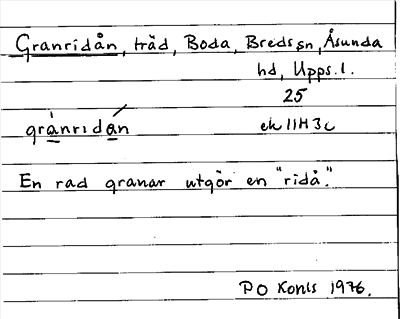 Granridån, träd, Boda, Breds sn, Åsunda
hd, Upps. l.
25
grànridán ek 11H3c
En rad granar utgör en "ridå".
P O Konls 1976.